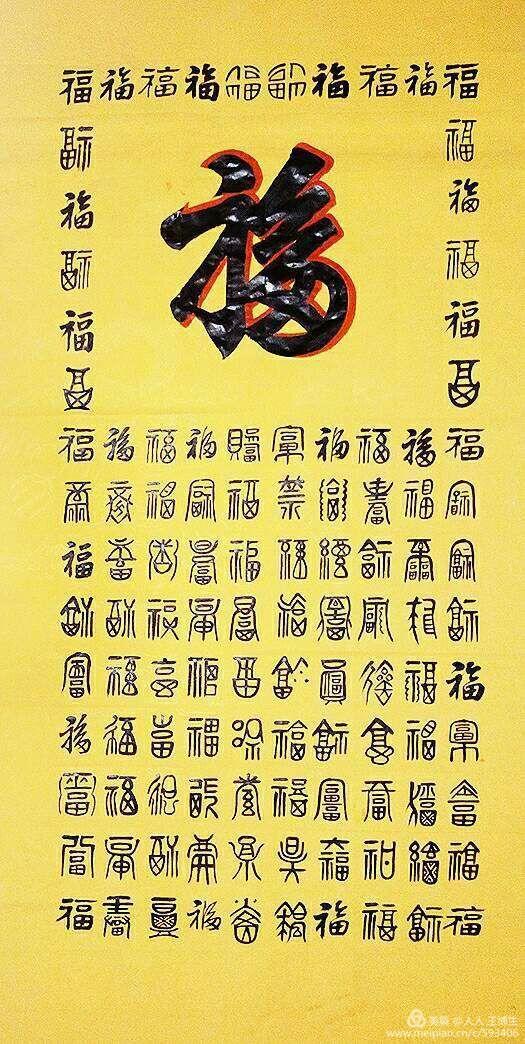 福福福福福福福福福福
福 福
福
福 福
福 福
福 福
福 福
福福福福福福福福福福
福福福福福福福福福福
福福福福福福福福福福
福福福福福福福福福福
福福福福福福福福福福
福福福福福福福福福福
福福福福福福福福福福
福福福福福福福福福福
福福福福福福福福福福
美篇 @人人
www.meipian.cn/c/593406